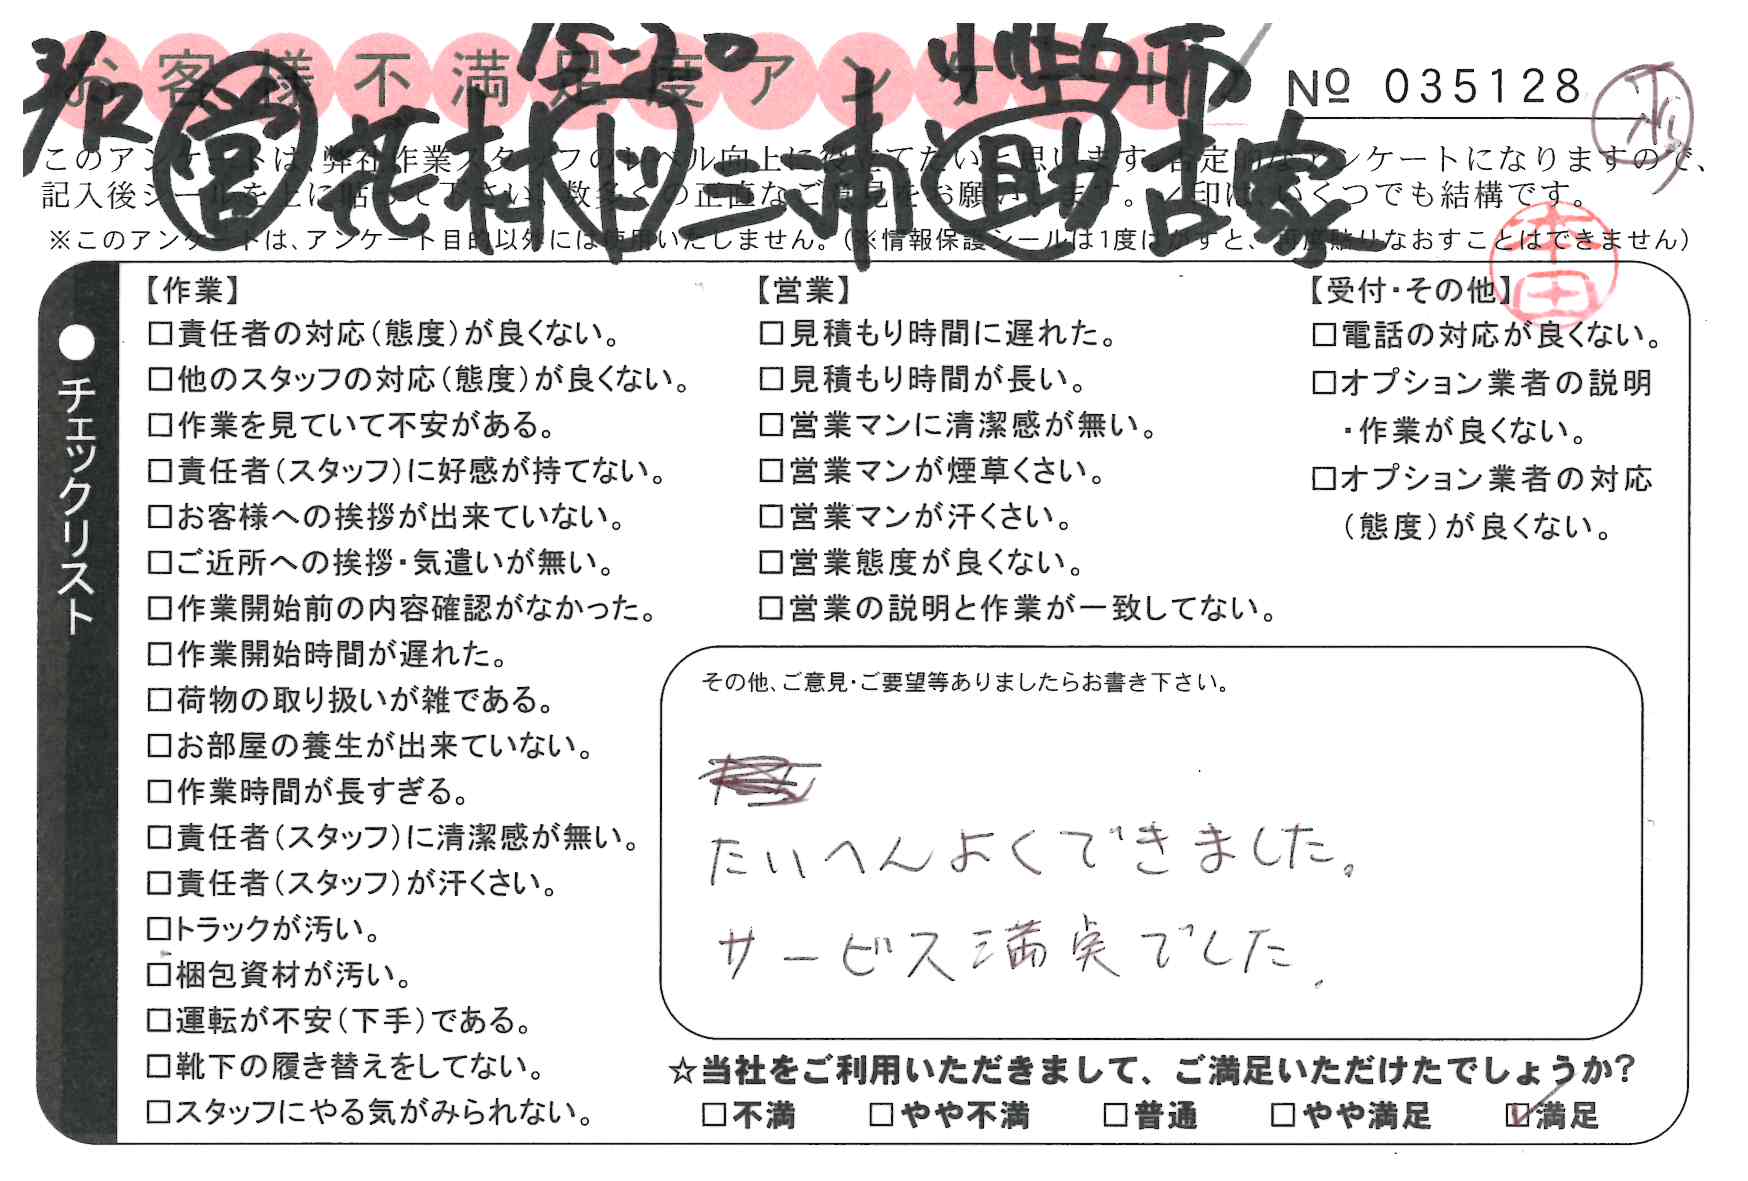 お客様不満足度アンケート
3/12 営 花村 15-20 ト 三浦 助 古家
№ 035128
このアンケートは、弊社作業スタッフのレベル向上に役立てたいと思います。否定的なアンケートになりますので、
記入後シールを上に貼って下さい。数多くの正直なご意見をお願いします。✓印は、いくつでも結構です。
※このアンケートは、アンケート目的以外には使用いたしません。（※情報保護シールは1度はがすと、再度貼りなおすことはできません）
本田
●チェックリスト
【作業】
□責任者の対応（態度）が良くない。
□他のスタッフの対応（態度）が良くない。
□作業を見ていて不安がある。
□責任者（スタッフ）に好感が持てない。
□お客様への挨拶が出来ていない。
□ご近所への挨拶・気遣いが無い。
□作業開始前の内容確認がなかった。
□作業開始時間が遅れた。
□荷物の取り扱いが雑である。
□お部屋の養生が出来ていない。
□作業時間が長すぎる。
□責任者（スタッフ）に清潔感が無い。
□責任者（スタッフ）が汗くさい。
□トラックが汚い。
□梱包資材が汚い。
□運転が不安（下手）である。
□靴下の履き替えをしてない。
□スタッフにやる気がみられない。
【営業】
□見積もり時間に遅れた。
□見積もり時間が長い。
□営業マンに清潔感が無い。
□営業マンが煙草くさい。
□営業マンが汗くさい。
□営業態度が良くない。
□営業の説明と作業が一致してない。
【受付・その他】
□電話の対応が良くない。
□オプション業者の説明
・作業が良くない。
□オプション業者の対応
（態度）が良くない。
その他、ご意見・ご要望等ありましたらお書き下さい。
たいへんよくできました。
サービス満点でした.
☆当社をご利用いただきまして、ご満足いただけたでしょうか？
□不満 □やや不満 □普通 □やや満足 ☑満足